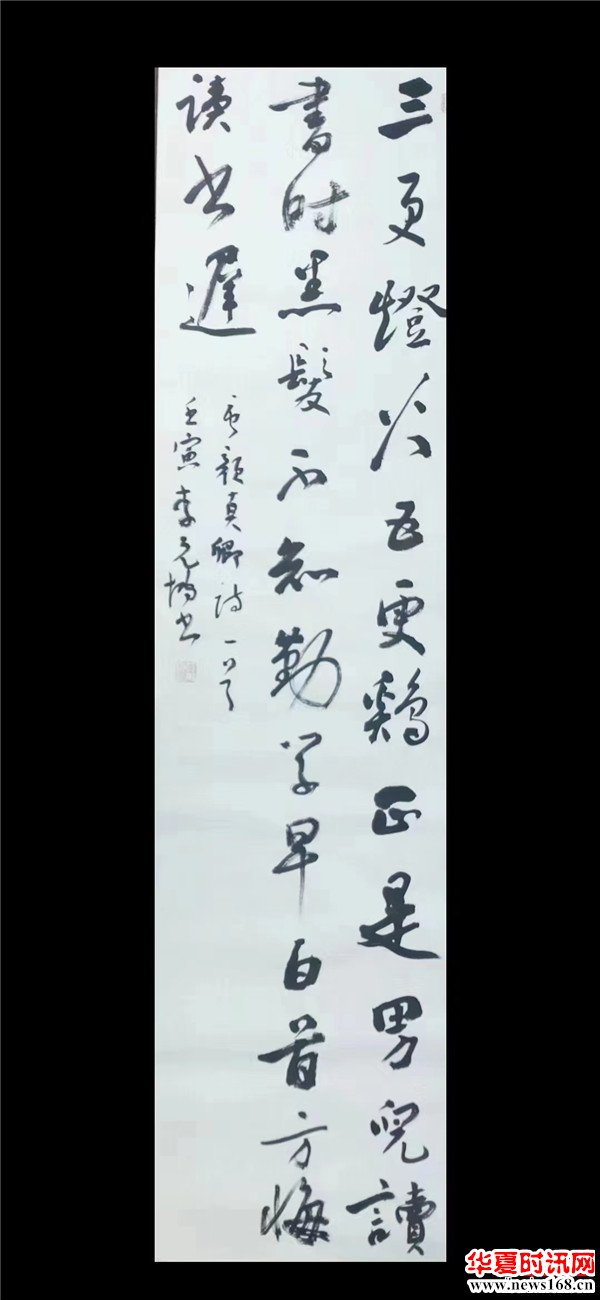 三更燈火五更鷄正是男兒讀
書时黑髮不知勤学早白首方悔
读书遲
录颜真卿诗一首
壬寅李元坤书
华夏时讯网
www.news168.com